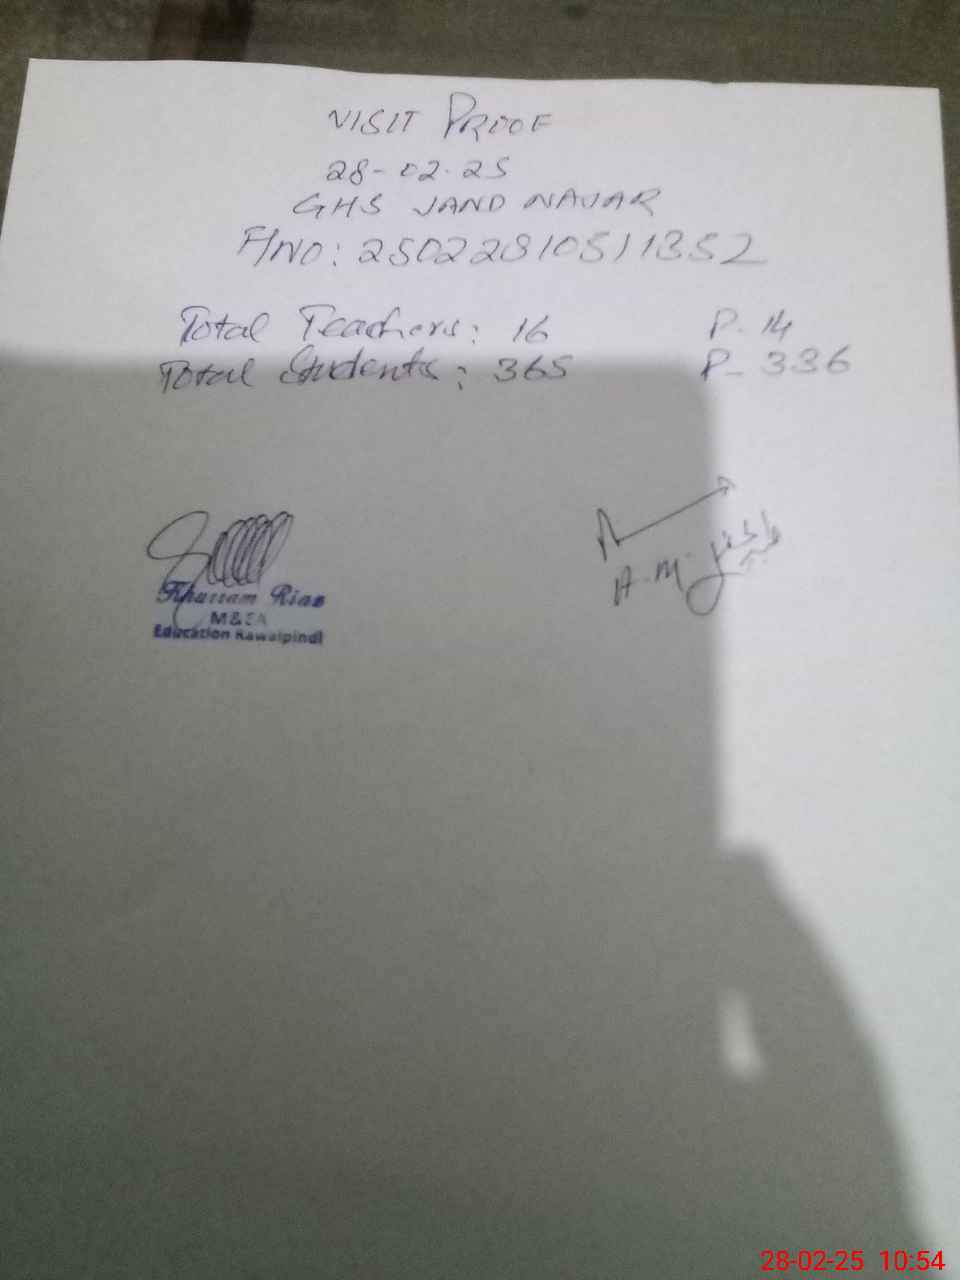 VISIT PROOF
28-02-25
GHS JAND NAJAR
F/NO: 25022810511352
Total Teachers: 16 P- 14
Total Students: 365 P- 336
Khurram Riaz
M&EA
Education Rawalpindi
H.M.
28-02-25 10:54